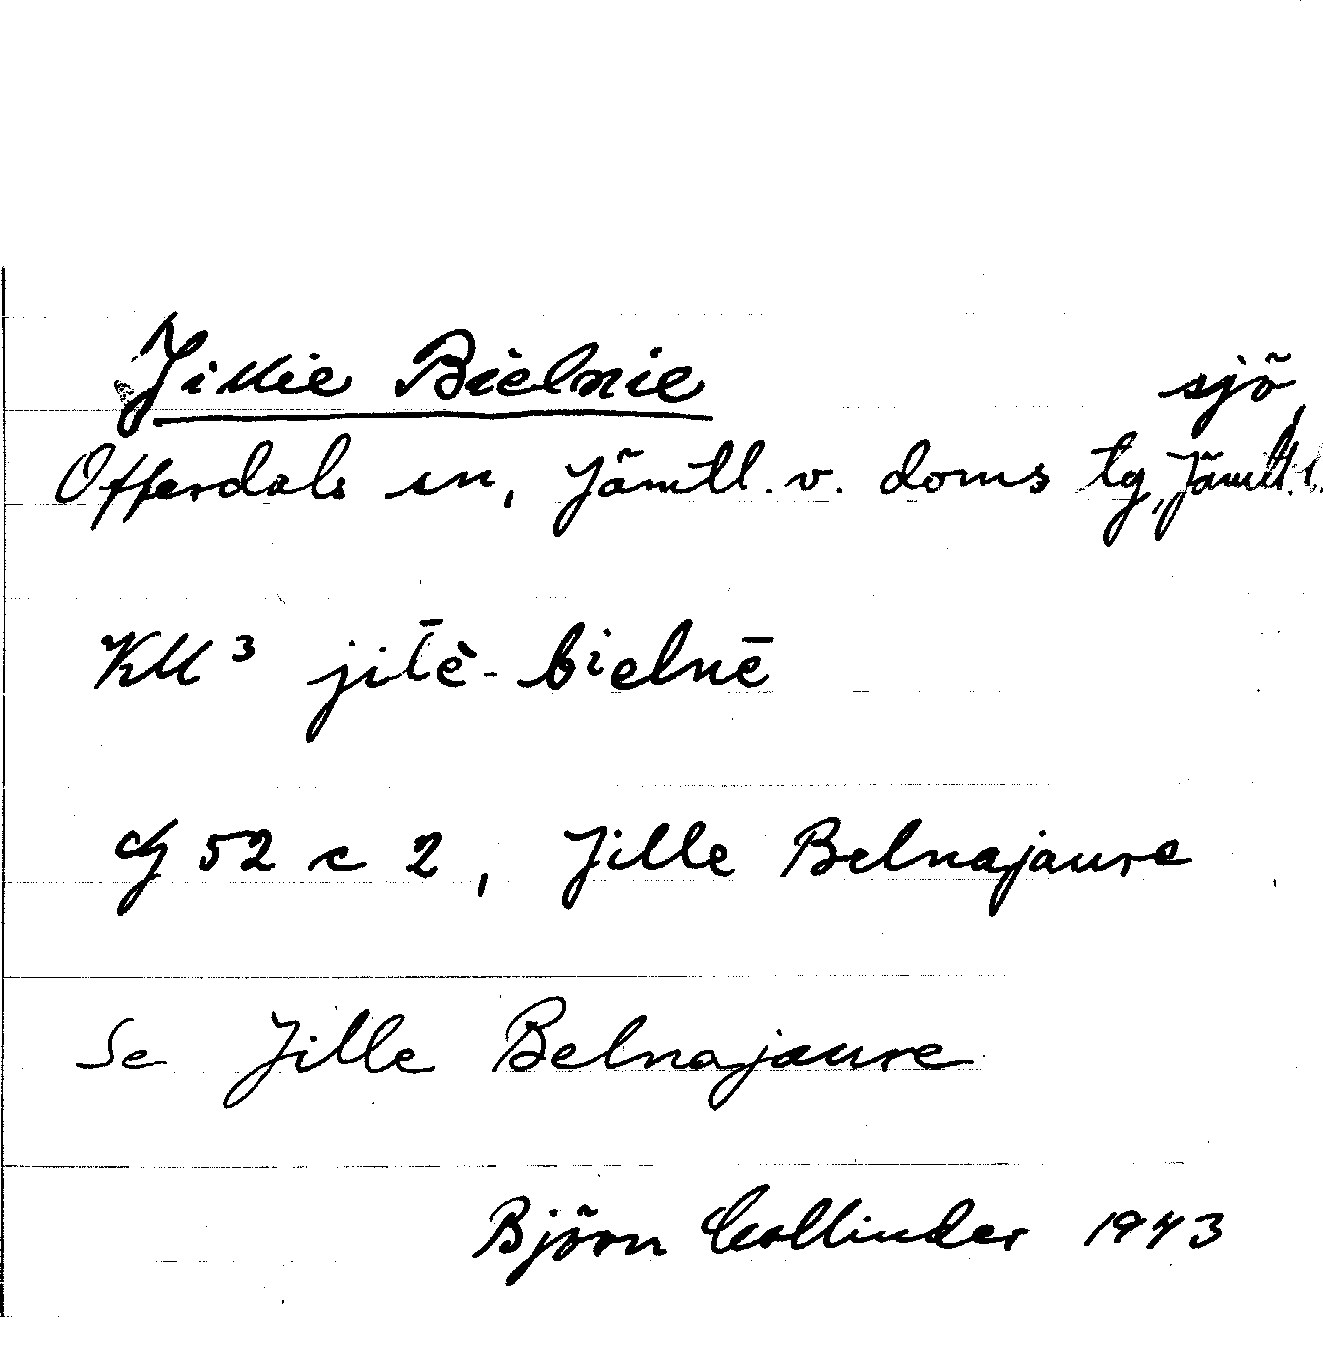 Jillie Bielnie sjö
Offerdals sn, Jämtl. v. doms tg, Jämtl. l.
KM³ jiĺ̄è-bielnē
G 52 c 2, Jille Belnajaure
Se Jille Belnajaure
Björn Collinder 1943